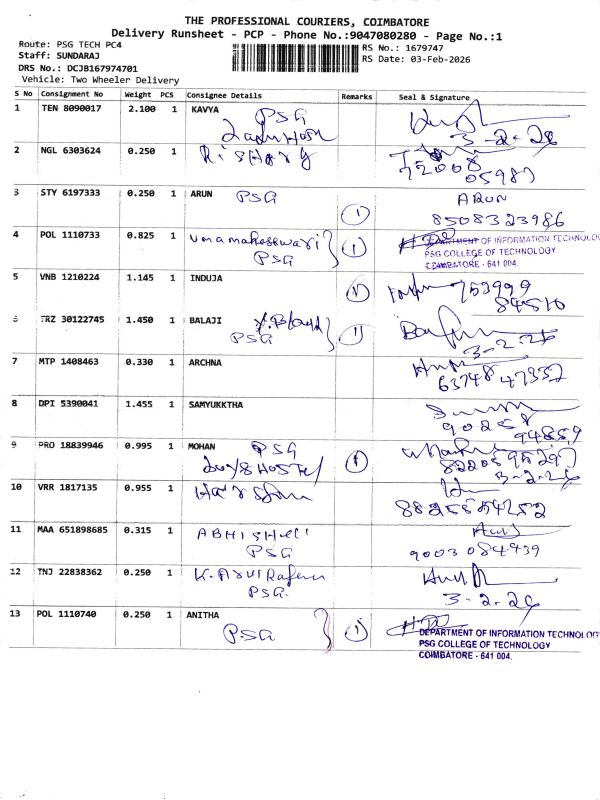 THE PROFESSIONAL COURIERS, COIMBATORE
Delivery Runsheet - PCP - Phone No.:9047080280 - Page No.:1
Route: PSG TECH PC4
RS No.: 1679747
Staff: SUNDARAJ
RS Date: 03-Feb-2026
DRS No.: DCJB167974701
Vehicle: Two Wheeler Delivery
S No Consignment No Weight PCS Consignee Details Remarks Seal & Signature
1 TEN 8090017 2.100 1 KAVYA PSG
3-2-26
2 NGL 6303624 0.250 1
72008
05987
3 STY 6197333 0.250 1 ARUN PSG 1 ARUN
8508323986
4 POL 1110733 0.825 1 Umamaheswari 1 DEPARTMENT OF INFORMATION TECHNOLOG
PSG PSG COLLEGE OF TECHNOLOGY
COIMBATORE - 641 004.
5 VNB 1210224 1.145 1 INDUJA 753999
84510
6 TRZ 30122745 1.450 1 BALAJI 1
PSG 3-2-26
7 MTP 1408463 0.330 1 ARCHNA
63748 47332
8 DPI 5390041 1.455 1 SAMYUKKTHA
90258
94859
9 PRO 18839946 0.995 1 MOHAN PSG
HOSTEL 3-2-26
10 VRR 1817135 0.955 1
11 MAA 651898685 0.315 1 ABHISHEK
PSG 9003084939
12 TNJ 22838362 0.250 1 K.
PSG. 3-2-26
13 POL 1110740 0.250 1 ANITHA
PSG 1 DEPARTMENT OF INFORMATION TECHNOLOG
PSG COLLEGE OF TECHNOLOGY
COIMBATORE - 641 004.